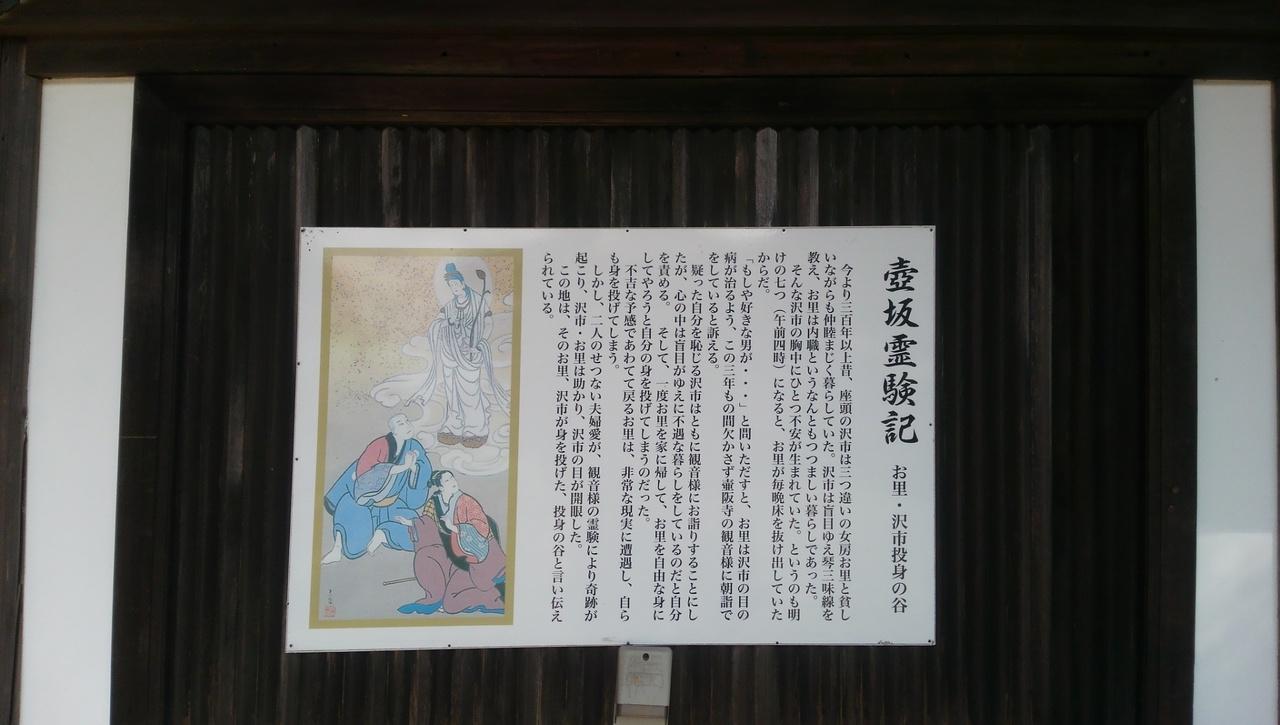 壺坂霊験記
お里・沢市投身の谷
今より三百年以上昔、座頭の沢市は三つ違いの女房お里と貧し
いながらも仲睦まじく暮らしていた。沢市は盲目ゆえ琴三味線を
教え、お里は内職というなんともつつましい暮らしであった。
そんな沢市の胸中にひとつ不安が生まれていた。というのも明
けの七つ（午前四時）になると、お里が毎晩床を抜け出していた
からだ。
「もしや好きな男が・・・」と問いただすと、お里は沢市の目の
病が治るよう、この三年もの間欠かさず壷阪寺の観音様に朝詣で
をしていると訴える。
疑った自分を恥じる沢市はともに観音様にお詣りすることにし
たが、心の中は盲目がゆえに不遇な暮らしをしているのだと自分
を責める。 そして、一度お里を家に帰して、お里を自由な身に
してやろうと自分の身を投げてしまうのだった。
不吉な予感であわてて戻るお里は、非常な現実に遭遇し、自ら
も身を投げてしまう。
しかし、二人のせつない夫婦愛が、観音様の霊験により奇跡が
起こり、沢市・お里は助かり、沢市の目が開眼した。
この地は、そのお里、沢市が身を投げた、投身の谷と言い伝え
られている。